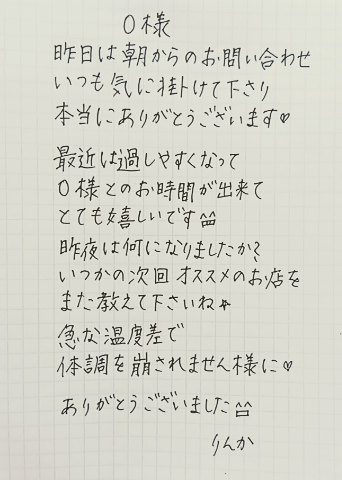 O様
昨日は朝からのお問い合わせ
いつも気に掛けて下さり
本当にありがとうございます♡
最近は過しやすくなって
O様とのお時間が出来て
とても嬉しいです^^
昨夜は何になりましたか?
いつかの次回オススメのお店を
また教えて下さいね☆
急な温度差で
体調を崩されません様に♡
ありがとうございました^^
りんか